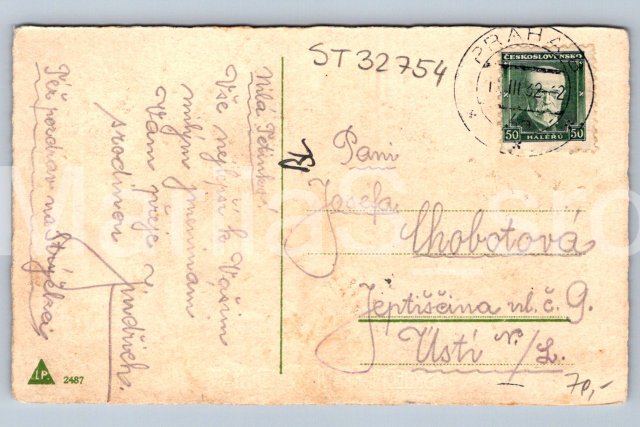 ST 32754
PRAHA
III 32
ČESKOSLOVENSKO
50 HALÉŘŮ 50
Milá Tetinko!
Vše nejlepší k Vašim
milým jmeninám
Vám přeje z
srodinou
Jindřich.
Též pozdrav na Strýčka
Paní
Josefa
Chobotová
Jeptiščina ul. č. 9.
Ústí n./L.
70,-
L.P. 2487